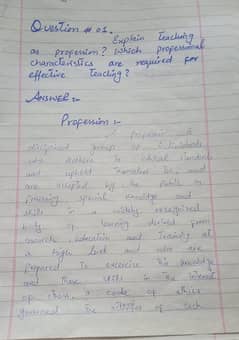 Question # 01.
Explain Teaching
as profession? Which professional
characteristics are required for
effective Teaching?
Answer:-
Profession:-
A profession is
disciplined group of individuals
who adhere to ethical standards
and uphold themselves to, and
are accepted by the public as
possessing special knowledge and
skills in a widely recognized
body of learning derived from
education and Training at
a high level and who are
prepared to exercise this knowledge
and these skills in the interest
of others, a code of ethics
governed the of such